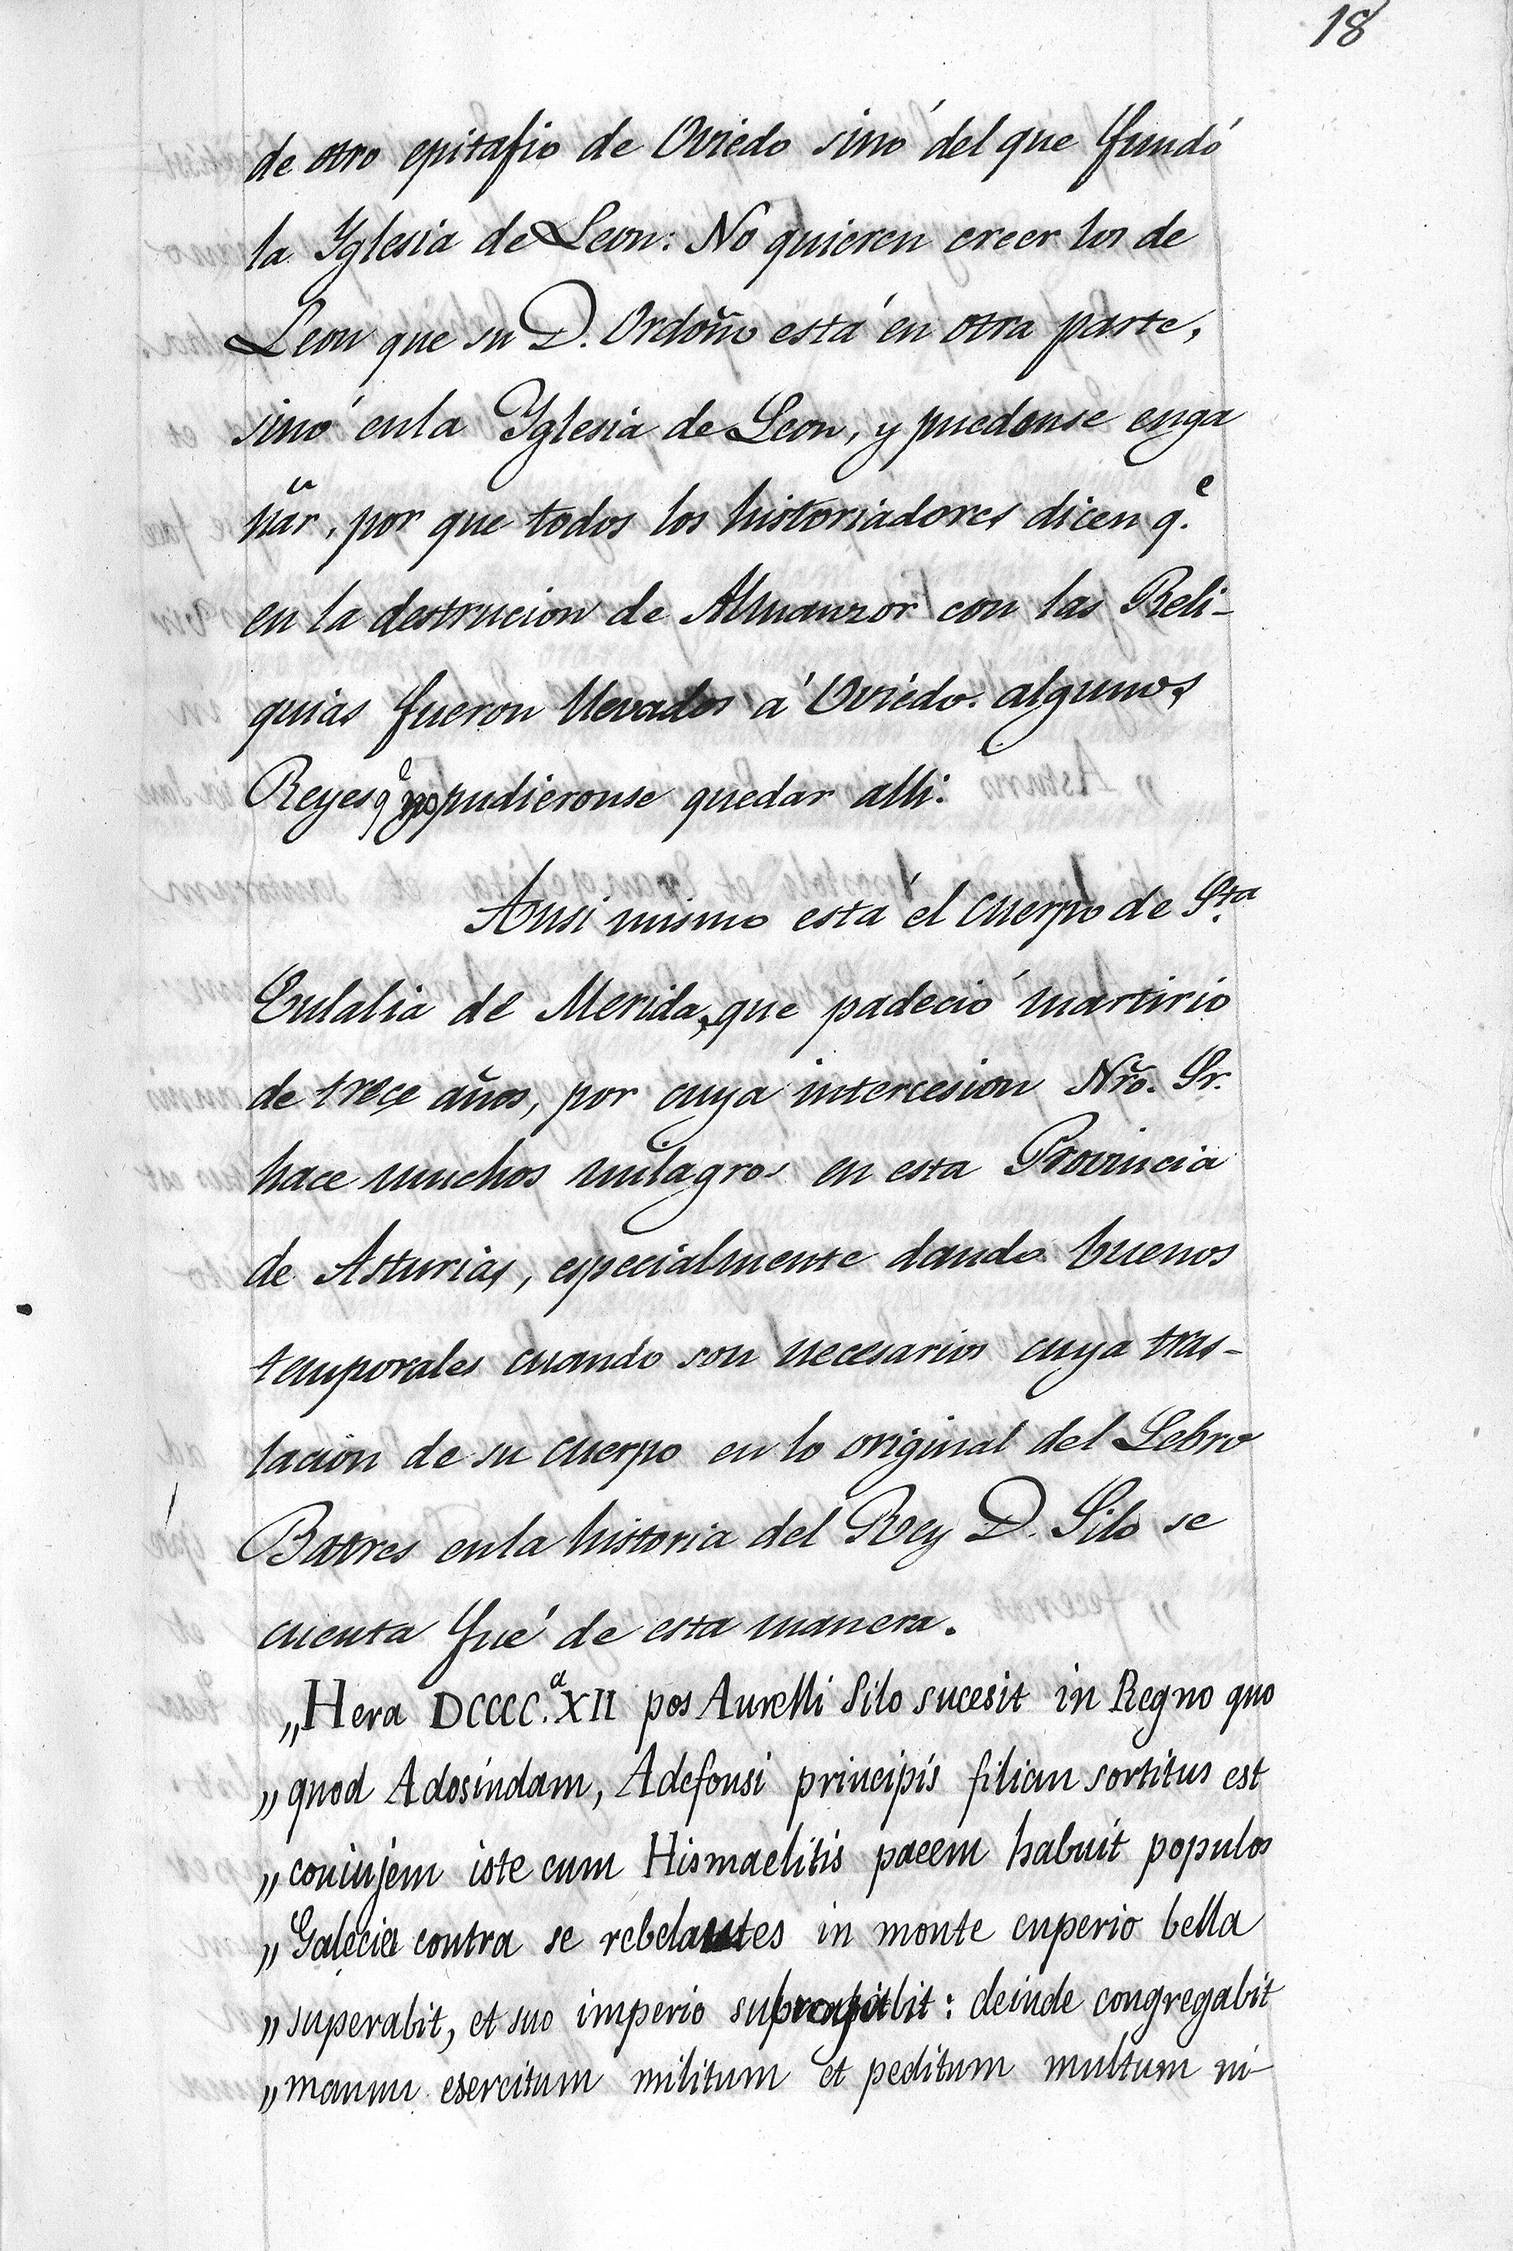 18
de otro epitafio de Oviedo sinó del que fundó
la Yglesia de Leon: No quieren creer los de
Leon que su D. Ordoño está en otra parte,
sinó en la Yglesia de Leon, y puedense enga
ñar, por que todos los historiadores dicen q.e
en la destrucion de Almanzor con las Reli-
quias fueron llevados á Oviedo. algunos
Reyes q e no pudieronse quedar alli.
Ansi mismo está el cuerpo de Sta.
Eulalia de Merida, que padeció martirio
de trece años, por cuya intercesion Nrõ. Sr.
hace muchos milagros en esta Provincia
de Asturias, especialmente dando buenos
temporales cuando son necesarios cuya tras-
lacion de su cuerpo en lo original del Lebro
Batres en la historia del Rey D. Silo se
cuenta fué de esta manera.
„Hera DCCCC.a XII pos Aurelli Silo sucesit in Regno quo
„quod Adosindam, Adefonsi principis filian sortitus est
„coniujem iste cum Hismaelitis pacem habuit populos
„Galecia contra se rebelantes in monte cuperio bella
„superabit, et suo imperio : deinde congregabit
„manun esercitum militum et peditum multum ni-